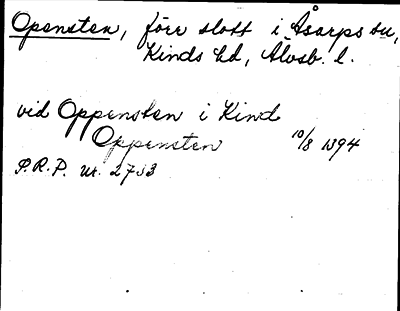 Opensten, förr slott i Åsarps sn,
Kinds hd, Älvsb. l.
vid Oppensten i Kind
Oppensten 10/8 1394
P.R.P. nr. 2733